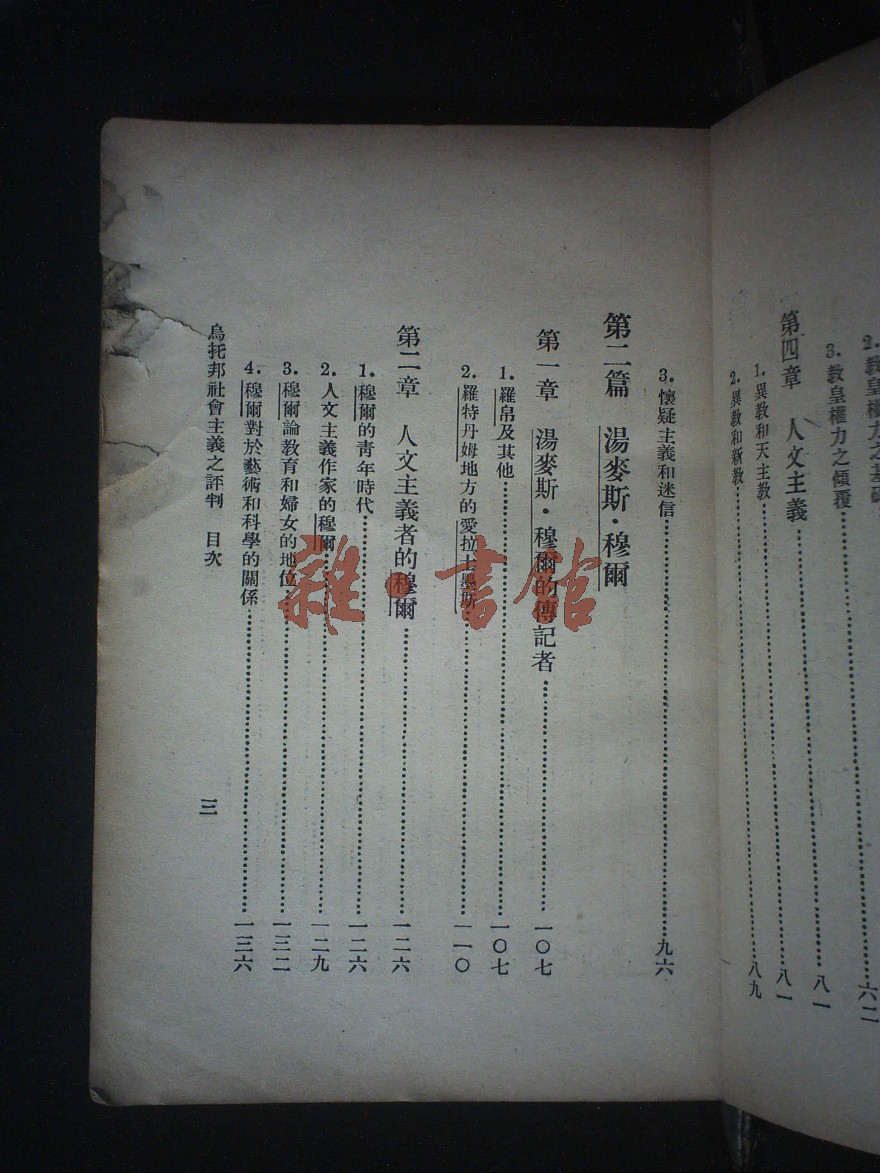 2．教皇權力之基礎……六二
3．教皇權力之傾覆……八一
第四章　人文主義……八一
1．異教和天主教……八一
2．異教和新教……八九
3．懷疑主義和迷信……九六
第二篇　湯麥斯・穆爾
第一章　湯麥斯・穆爾的傳記者……一〇七
1．羅帛及其他……一〇七
2．羅特丹姆地方的愛拉士墨斯……一一〇
第二章　人文主義者的穆爾……一二六
1．穆爾的青年時代……一二六
2．人文主義作家的穆爾……一二九
3．穆爾論教育和婦女的地位……一三二
4．穆爾對於藝術和科學的關係……一三六
烏托邦社會主義之評判　目次
三
雜・書館